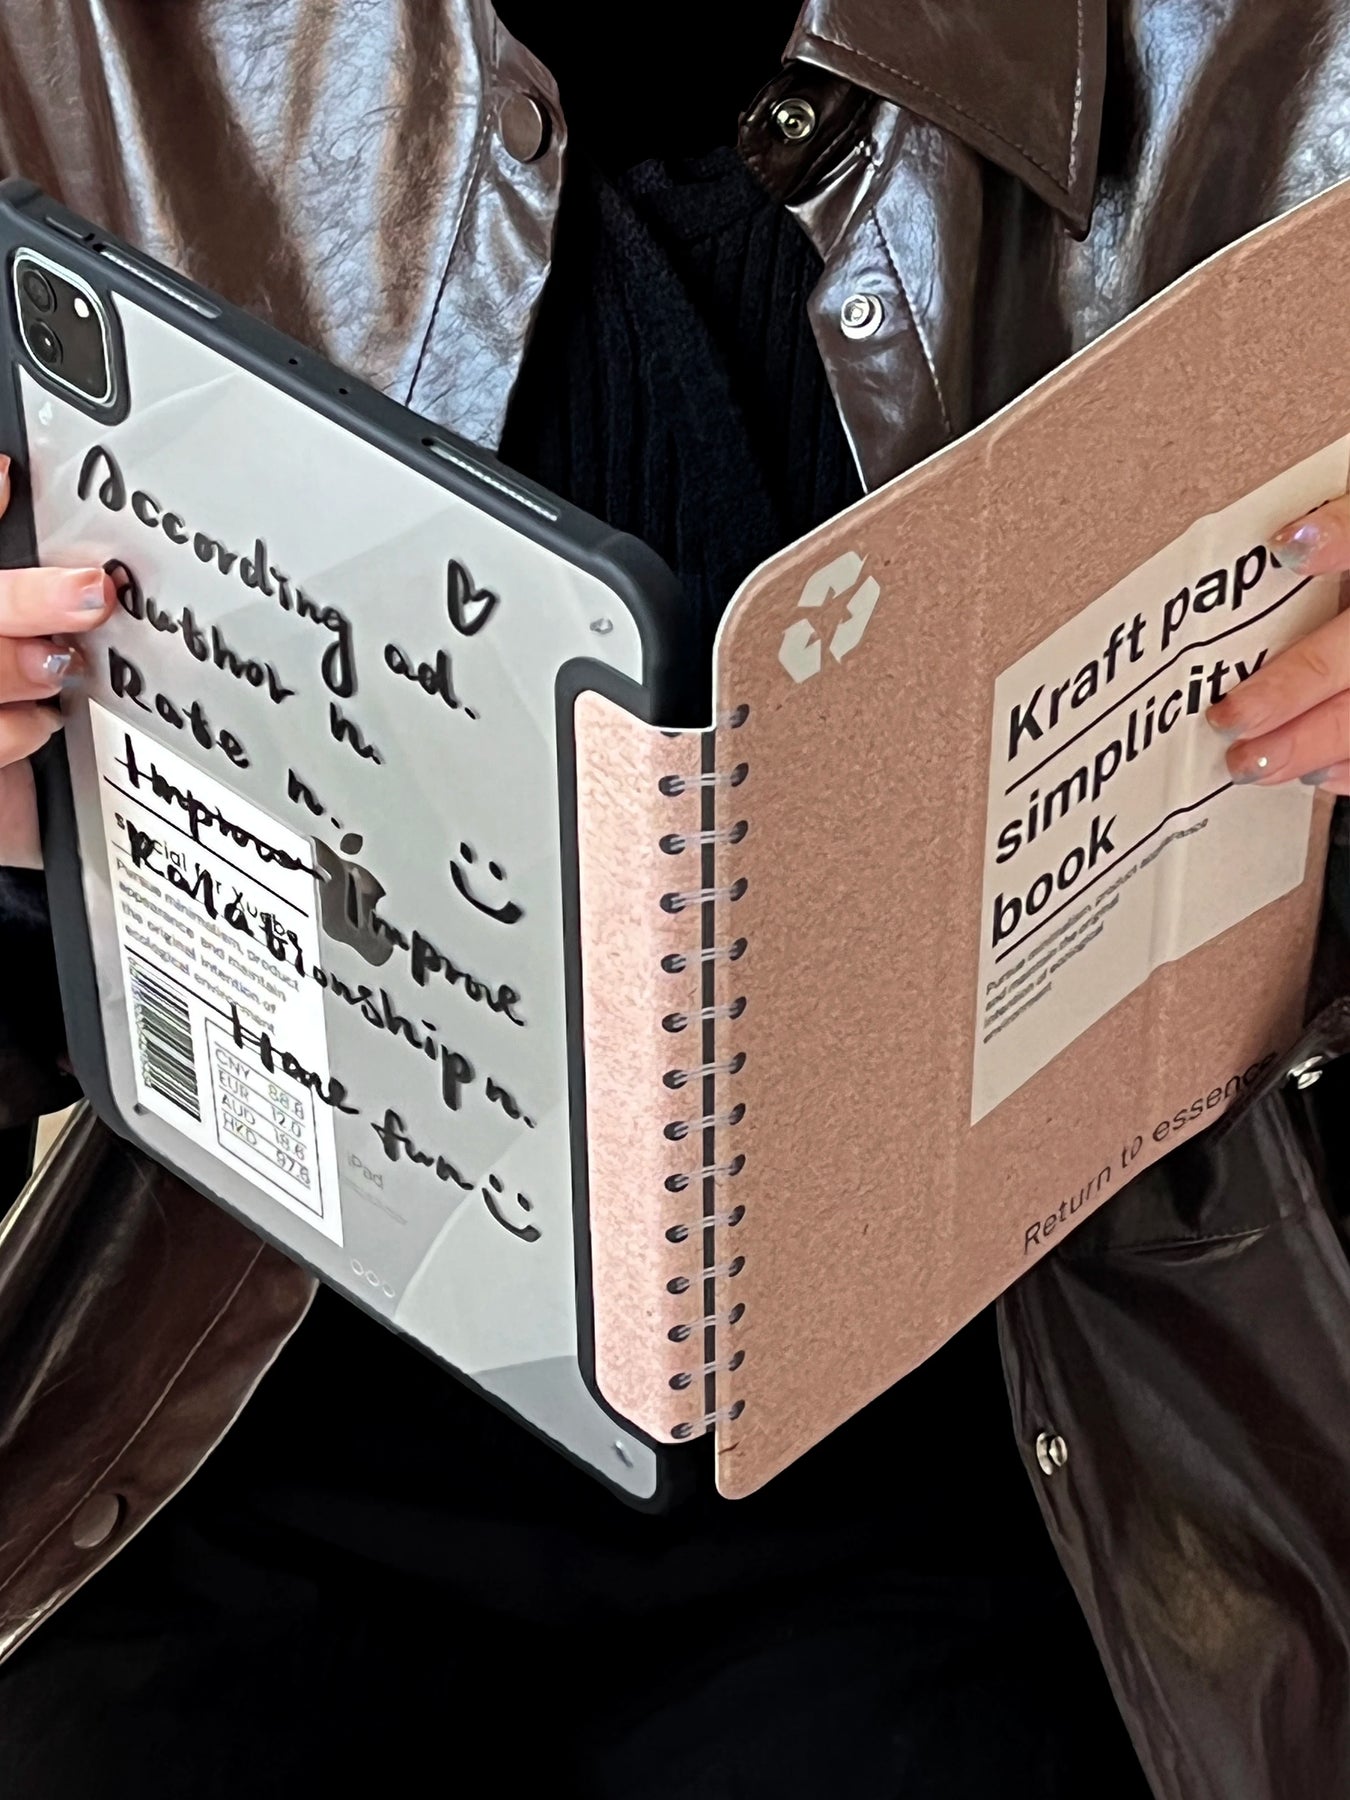 According ad.
Author n.
Rate n.
Improve Improve
Relationship n.
Have fun
special for
Pursue minimalism, product
appearance and maintain
the original intention of
ecological environment
CNY 88.8
EUR 12.0
AUD 18.6
HKD 97.6
iPad
Kraft pape
simplicity
book
Pursue minimalism, product appearance
and maintain the original
intention of ecological
environment
Return to essence